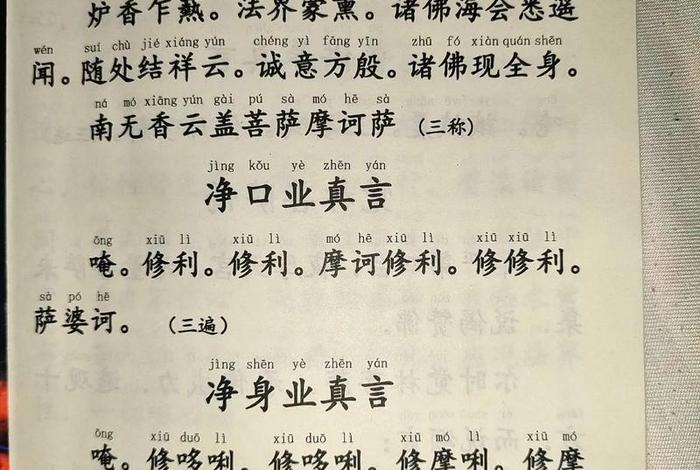 炉香乍热。法界蒙熏。诸佛海会悉遥
wén suí chù jié xiáng yún chéng yì fāng yīn zhū fó xiàn quán shēn
闻。随处结祥云。诚意方殷。诸佛现全身。
ná mó xiāng yún gài pú sà mó hē sà
南无香云盖菩萨摩诃萨（三称）
jìng kǒu yè zhēn yán
净口业真言
ōng xiū lì xiū lì mó hē xiū lì xiū xiū lì
唵。修利。修利。摩诃修利。修修利。
sà pó hē
萨婆诃。（三遍）
jìng shēn yè zhēn yán
净身业真言
ōng xiū duō lì xiū duō lì xiū mó lì xiū mó
唵。修哆唎。修哆唎。修摩唎。修摩